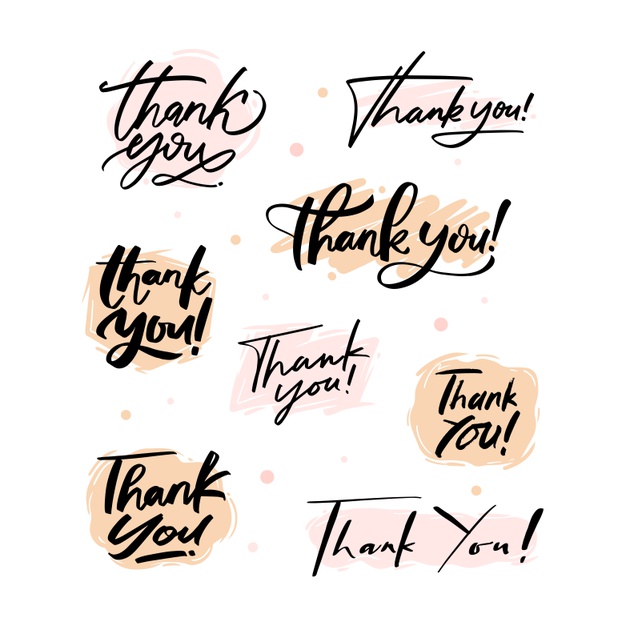 thank
you
Thank you!
Thank you!
thank
you!
Thank
you!
Thank
You!
Thank
You!
Thank You!